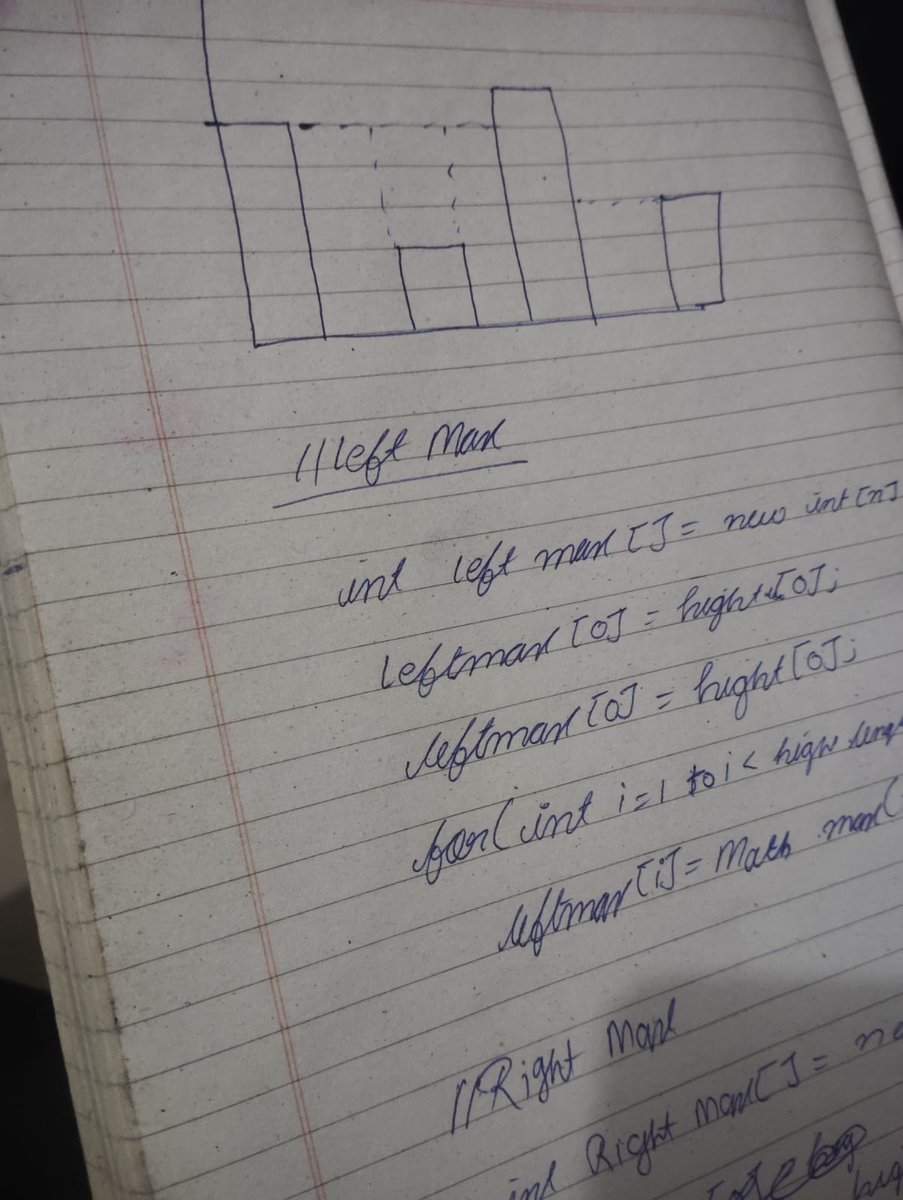 //left Max
int left max [] = new int [n]
leftmax [0] = hight [0];
leftmax [0] = hight [0];
for( int i=1 to i<
leftmax [i] = Math max(
//Right Max
int Right Max[] =